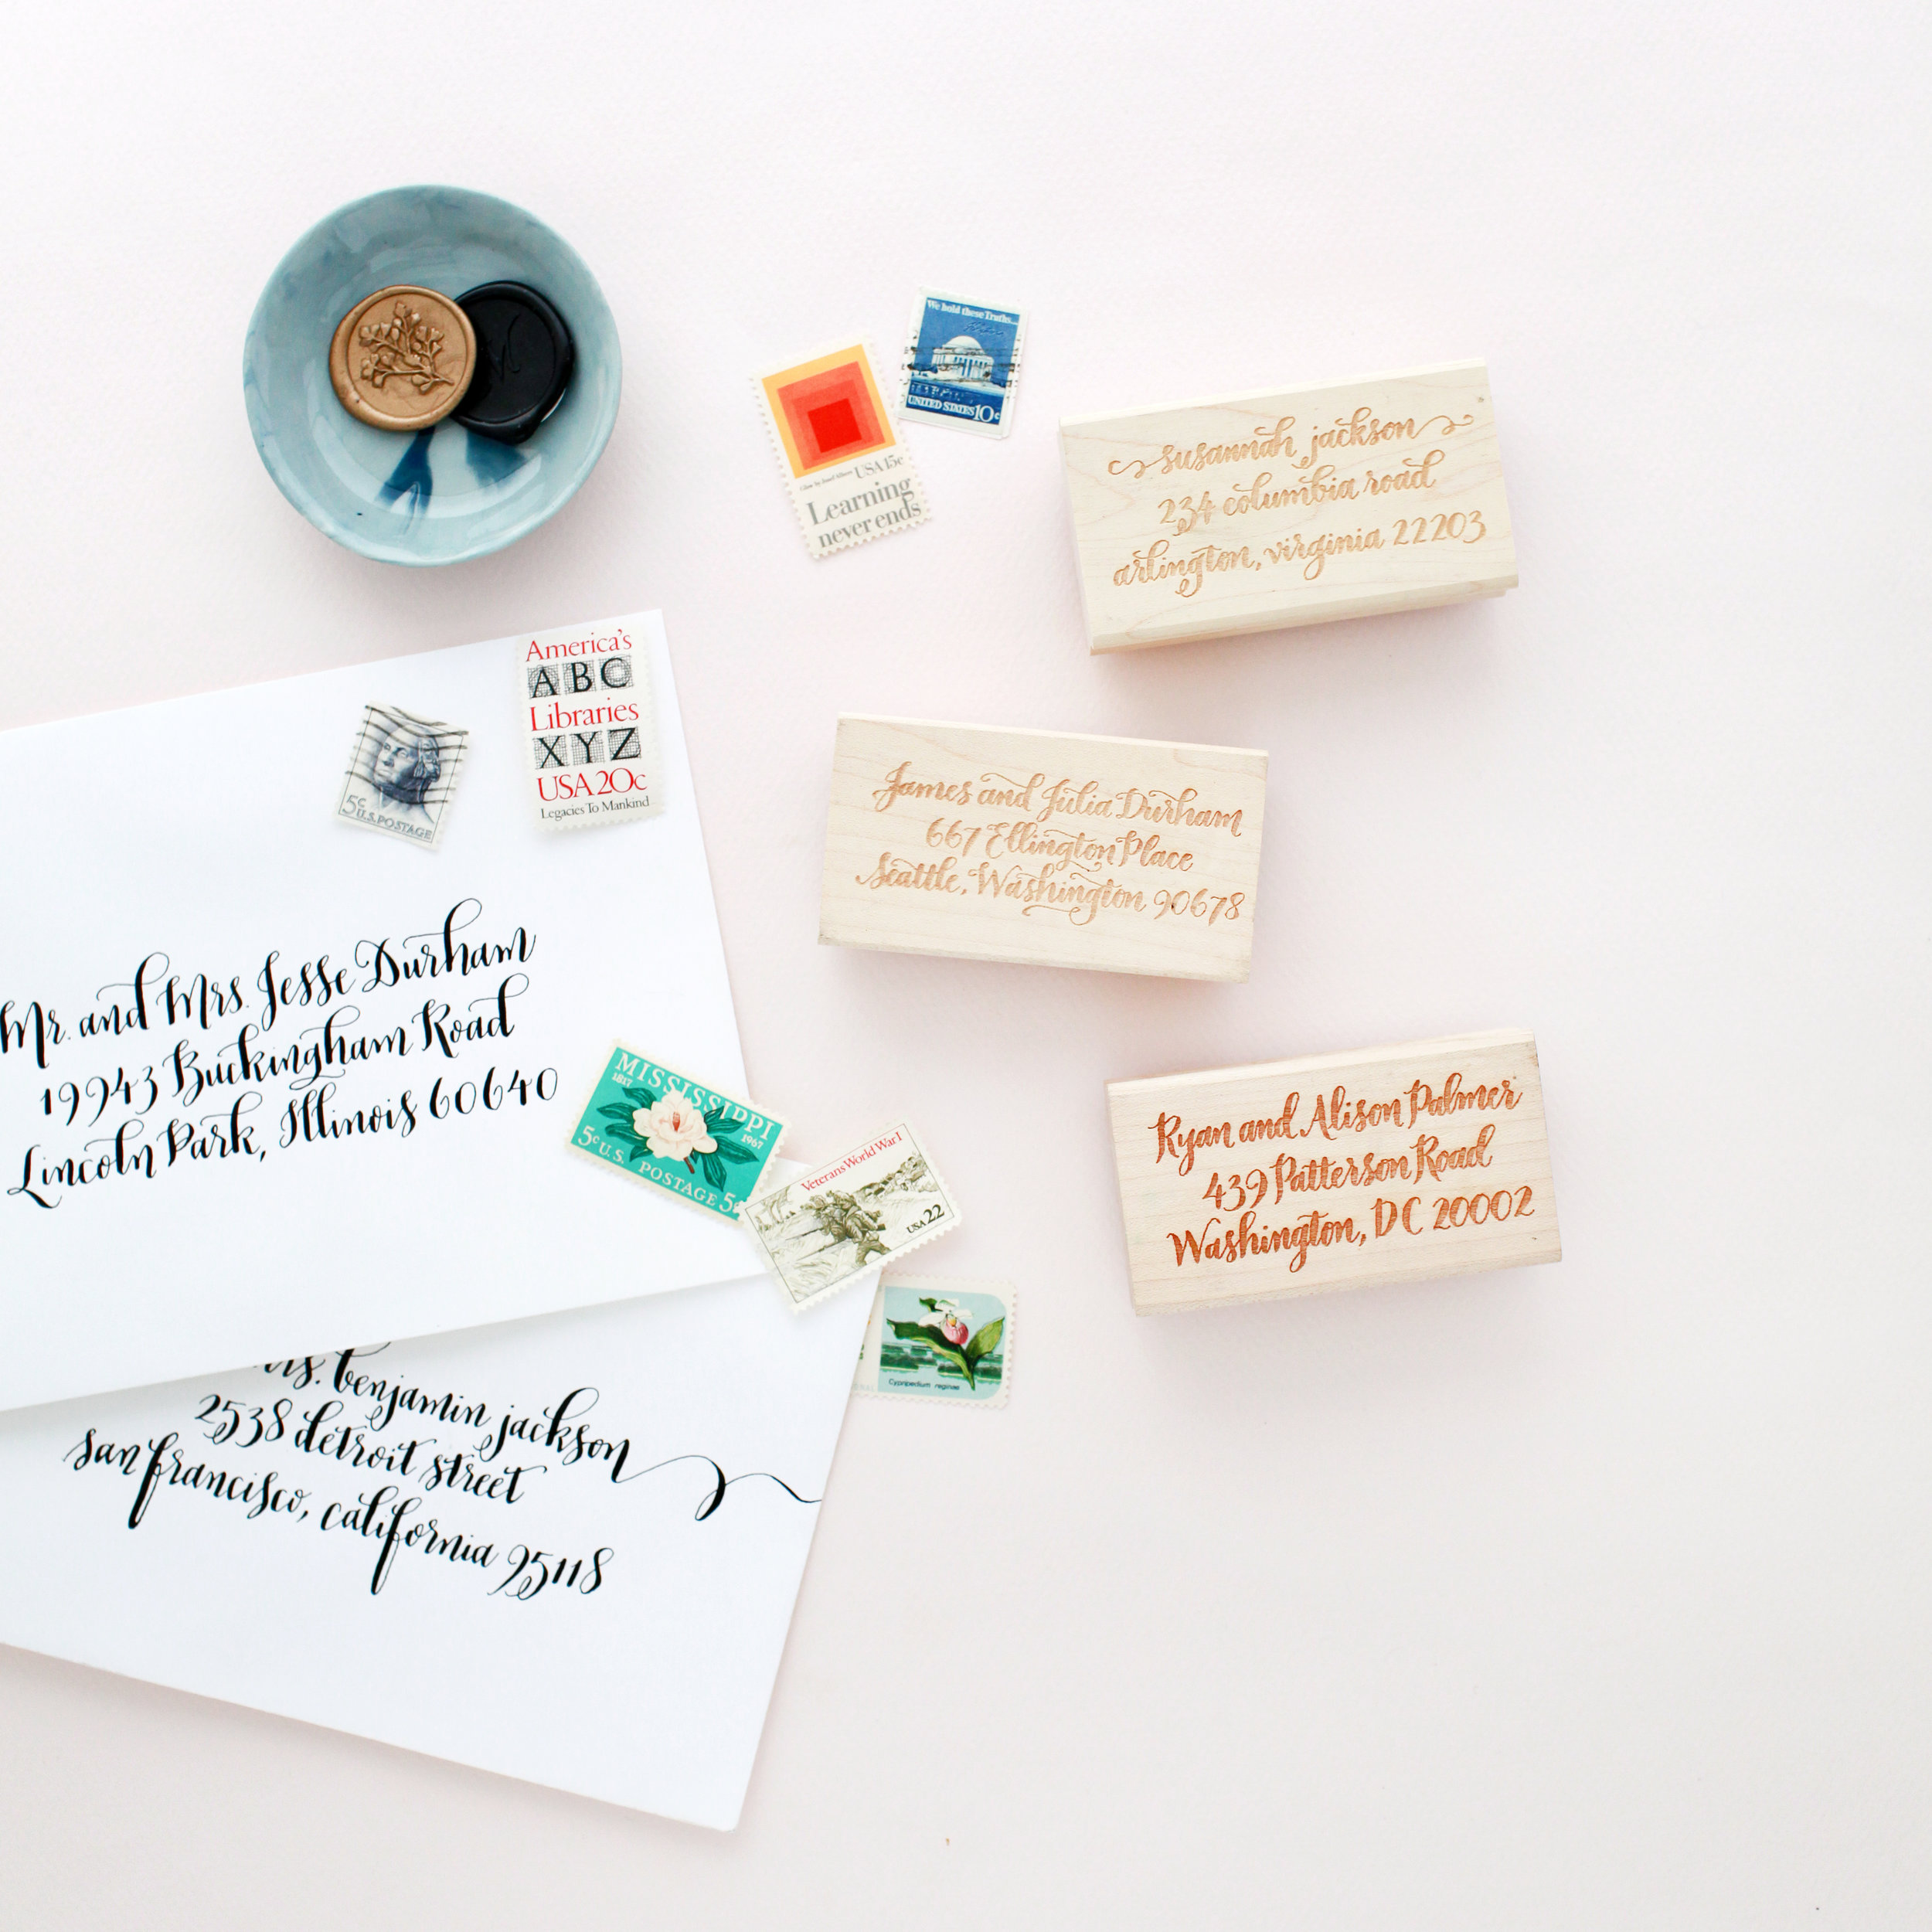 We hold these Truths...
UNITED STATES 10c
USA 15c
Learning
never ends
susannah jackson
234 columbia road
arlington, virginia 22203
America's
ABC
Libraries
XYZ
USA 20c
Legacies To Mankind
5c
U.S. POSTAGE
James and Julia Durham
667 Ellington Place
Seattle, Washington 90678
Mr. and Mrs. Jesse Durham
19943 Buckingham Road
Lincoln Park, Illinois 60640
MISSISSIPPI
1817
1967
5c U.S. POSTAGE 5c
Veterans World War I
USA 22
Ryan and Alison Palmer
439 Patterson Road
Washington, DC 20002
Cypripedium reginae
benjamin jackson
2538 detroit street
san francisco, california 95118